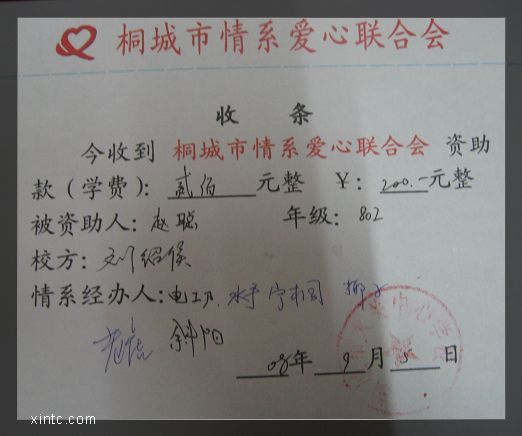 桐城市情系爱心联合会
收 条
今收到 桐城市情系爱心联合会 资助
款(学费): 贰佰 元整 ¥: 200.- 元整
被资助人: 赵聪 年级: 802
校方: 刘绍侯
情系经办人: 电工刀. 水手 柳子
老虎 斜阳
08年 9月 5日
xintc.com